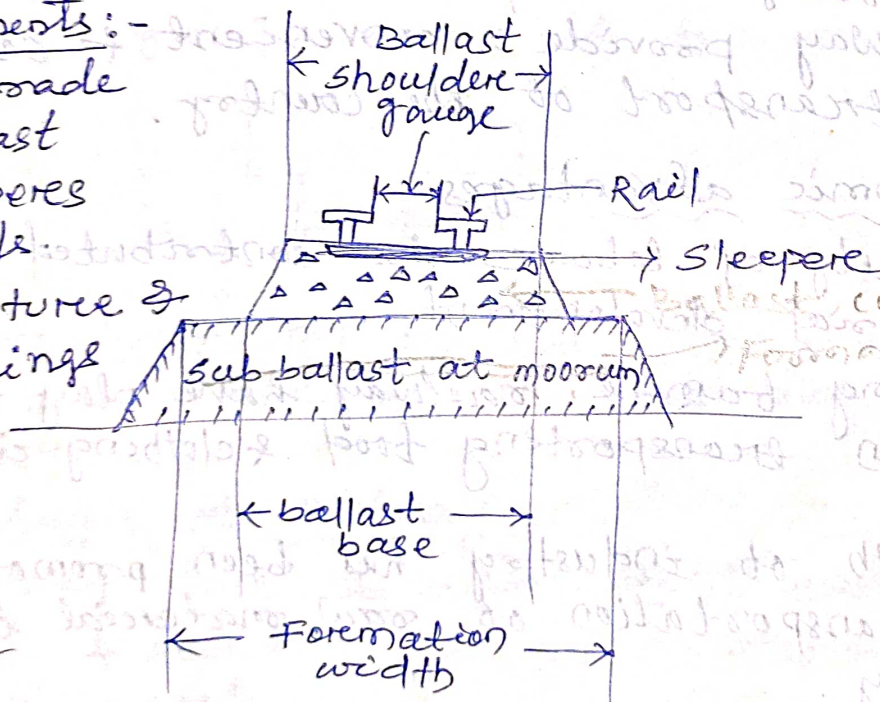 ents:-
rade
ast
peres
ls.
ture &
ings
Ballast
shouldere
gauge
Rail
Sleepere
Sub ballast at moorum
ballast
base
Foremation
width